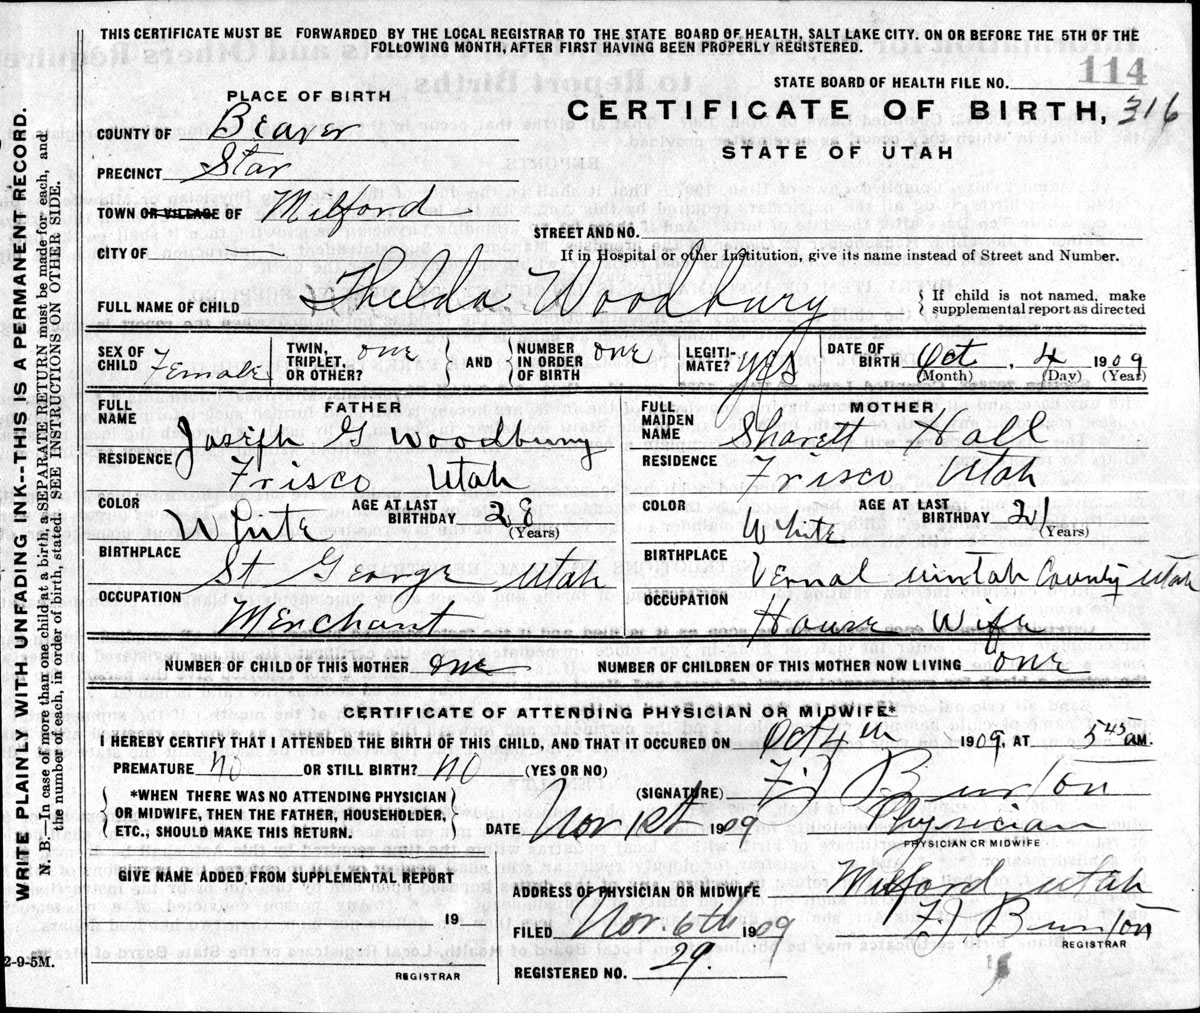 THIS CERTIFICATE MUST BE FORWARDED BY THE LOCAL REGISTRAR TO THE STATE BOARD OF HEALTH, SALT LAKE CITY. ON OR BEFORE THE 5TH OF THE
FOLLOWING MONTH, AFTER FIRST HAVING BEEN PROPERLY REGISTERED.
STATE BOARD OF HEALTH FILE NO. 114
PLACE OF BIRTH
CERTIFICATE OF BIRTH, 316
STATE OF UTAH
COUNTY OF Beaver
PRECINCT Star
TOWN OR VILLAGE OF Milford
STREET AND NO.
CITY OF
If in Hospital or other Institution, give its name instead of Street and Number.
FULL NAME OF CHILD Thelda Woodbury
If child is not named, make
supplemental report as directed
SEX OF CHILD Female
TWIN, TRIPLET, OR OTHER? one AND NUMBER IN ORDER OF BIRTH one
LEGITIMATE? yes
DATE OF BIRTH Oct 4 1909
(Month) (Day) (Year)
FATHER
FULL NAME Joseph G Woodbury
RESIDENCE Frisco Utah
COLOR White
AGE AT LAST BIRTHDAY 28 (Years)
BIRTHPLACE St George Utah
OCCUPATION Merchant
MOTHER
FULL MAIDEN NAME Sharett
RESIDENCE Frisco Utah
COLOR White
AGE AT LAST BIRTHDAY 21 (Years)
BIRTHPLACE Vernal Uintah County Utah
OCCUPATION House Wife
NUMBER OF CHILD OF THIS MOTHER one
NUMBER OF CHILDREN OF THIS MOTHER NOW LIVING one
CERTIFICATE OF ATTENDING PHYSICIAN OR MIDWIFE*
I HEREBY CERTIFY THAT I ATTENDED THE BIRTH OF THIS CHILD, AND THAT IT OCCURED ON Oct 4th 1909, AT 5 45 AM.
PREMATURE NO OR STILL BIRTH? NO (YES OR NO)
(SIGNATURE) F J Burton
*WHEN THERE WAS NO ATTENDING PHYSICIAN
OR MIDWIFE, THEN THE FATHER, HOUSEHOLDER,
ETC., SHOULD MAKE THIS RETURN.
DATE Nov 1st 1909
Physician
PHYSICIAN OR MIDWIFE
GIVE NAME ADDED FROM SUPPLEMENTAL REPORT
19
REGISTRAR
ADDRESS OF PHYSICIAN OR MIDWIFE Milford Utah
FILED Nov. 6th 1909
F J Burton
REGISTRAR
REGISTERED NO. 29.
2-9-5M.
WRITE PLAINLY WITH UNFADING INK--THIS IS A PERMANENT RECORD.
N. B.—In case of more than one child at a birth, a SEPARATE RETURN must be made for each, and
the number of each, in order of birth, stated. SEE INSTRUCTIONS ON OTHER SIDE.